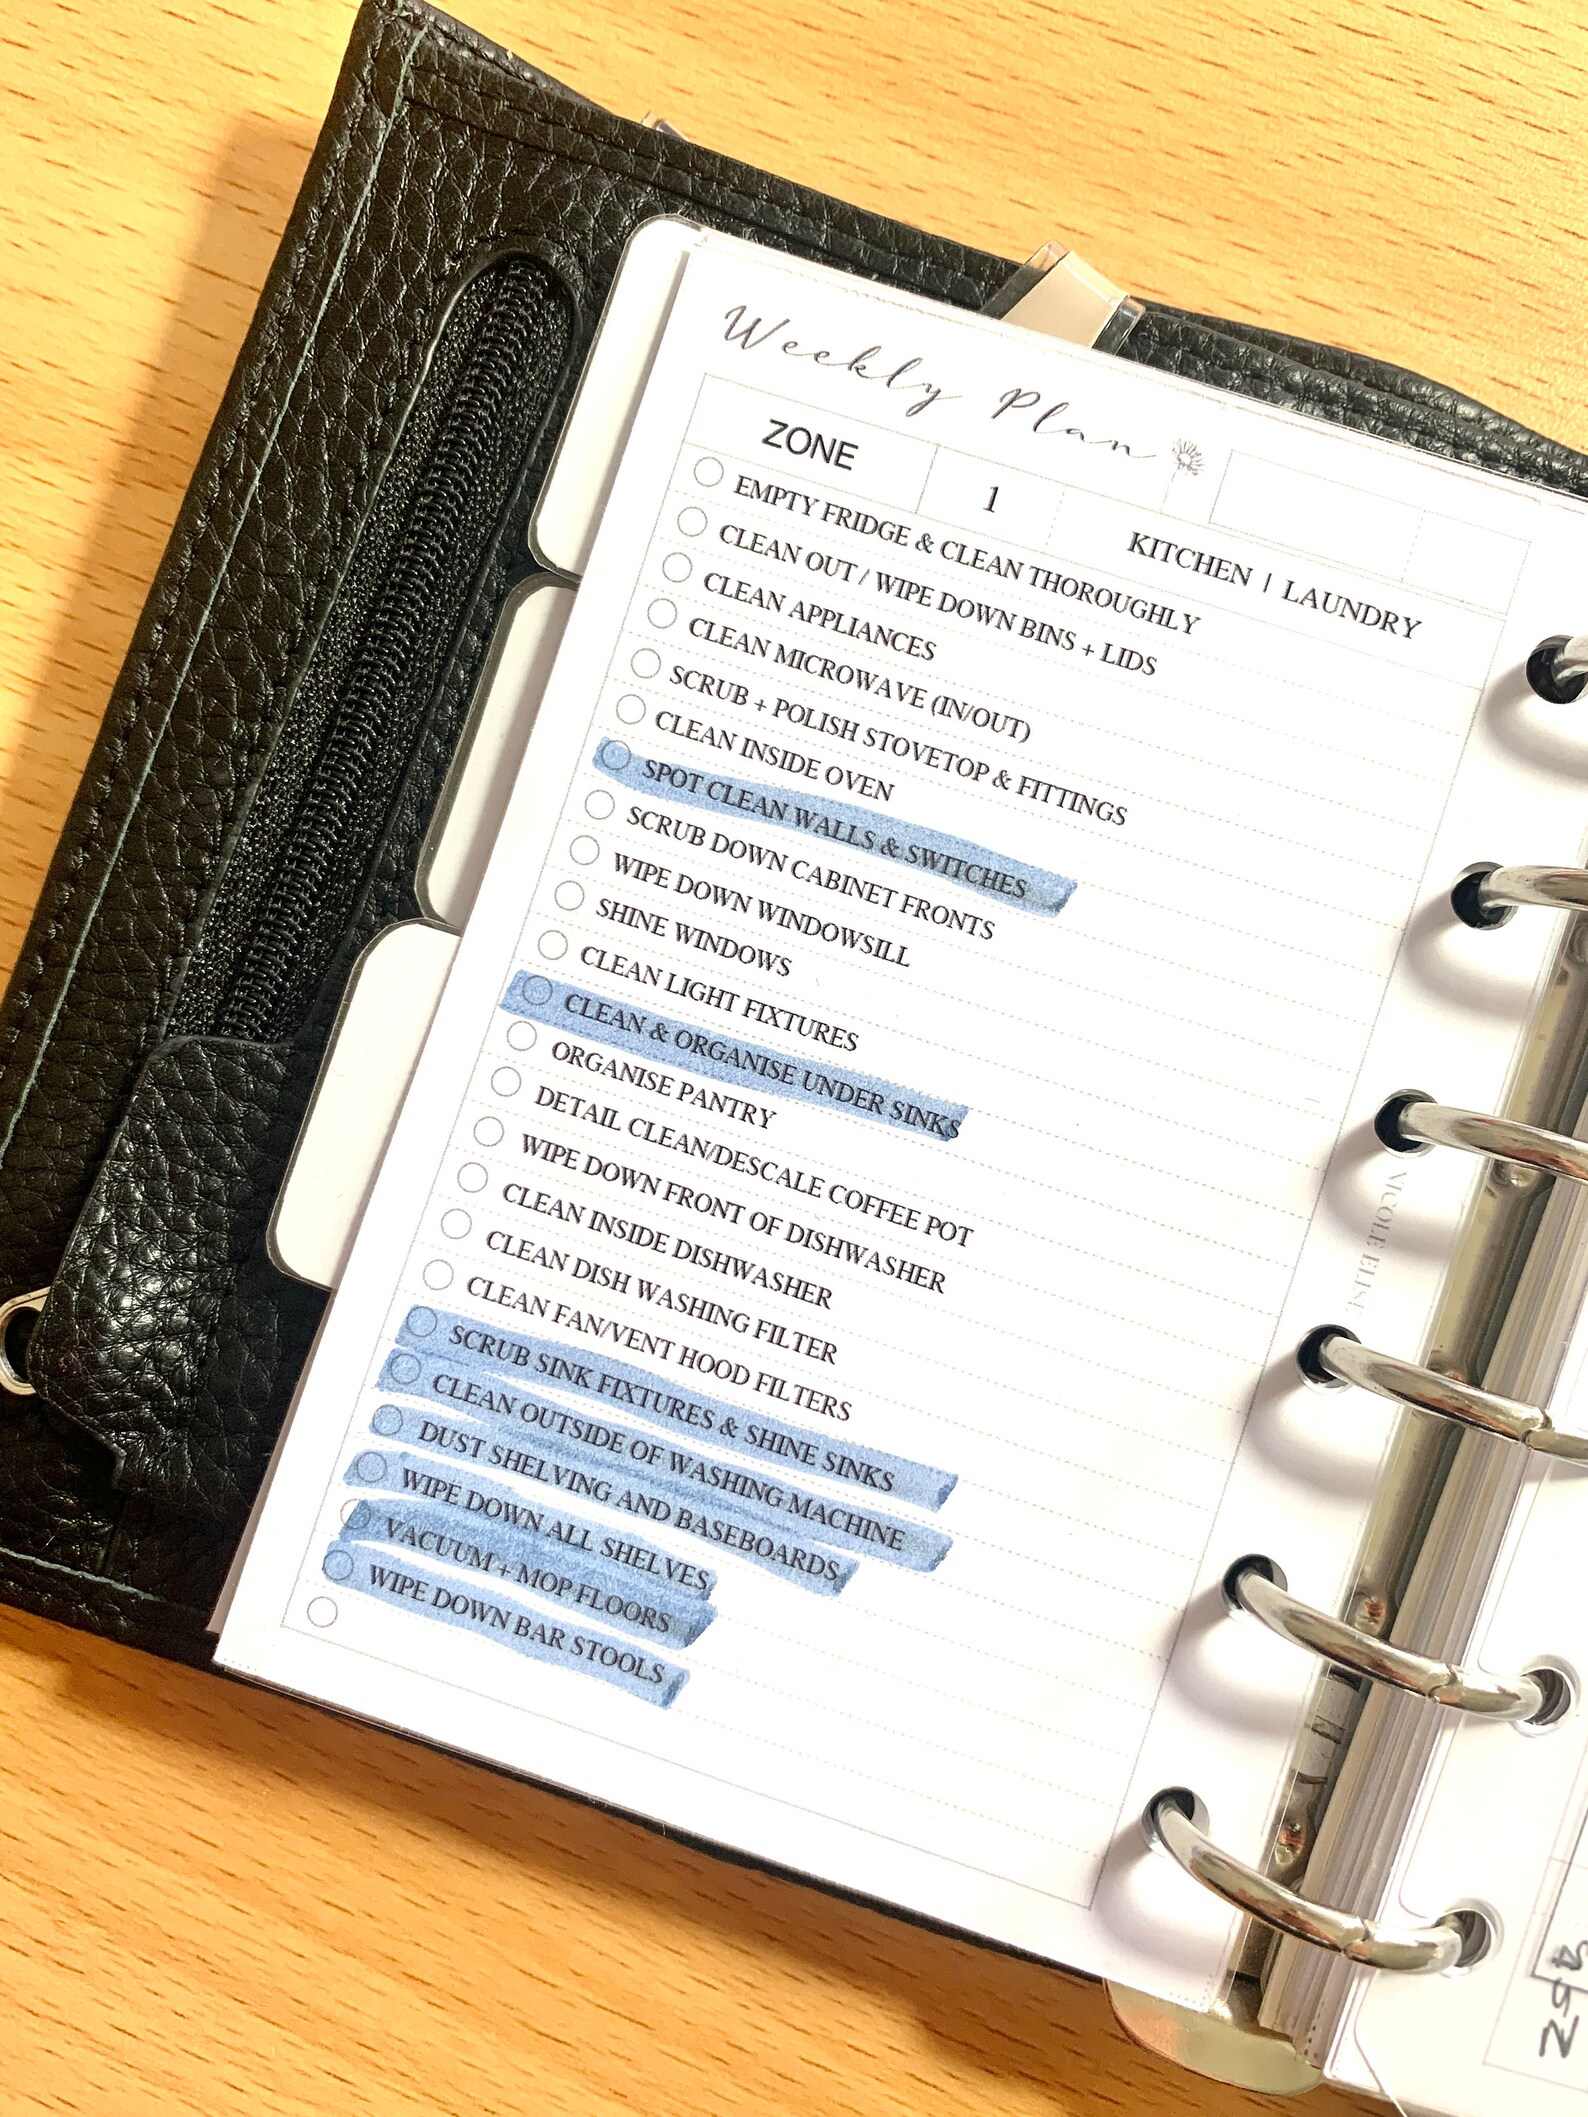 Weekly Plan
ZONE 1 KITCHEN | LAUNDRY
EMPTY FRIDGE & CLEAN THOROUGHLY
CLEAN OUT / WIPE DOWN BINS + LIDS
CLEAN APPLIANCES
CLEAN MICROWAVE (IN/OUT)
SCRUB + POLISH STOVETOP & FITTINGS
CLEAN INSIDE OVEN
SPOT CLEAN WALLS & SWITCHES
SCRUB DOWN CABINET FRONTS
WIPE DOWN WINDOWSILL
SHINE WINDOWS
CLEAN LIGHT FIXTURES
CLEAN & ORGANISE UNDER SINKS
ORGANISE PANTRY
DETAIL CLEAN/DESCALE COFFEE POT
WIPE DOWN FRONT OF DISHWASHER
CLEAN INSIDE DISHWASHER
CLEAN DISH WASHING FILTER
CLEAN FAN/VENT HOOD FILTERS
SCRUB SINK FIXTURES & SHINE SINKS
CLEAN OUTSIDE OF WASHING MACHINE
DUST SHELVING AND BASEBOARDS
WIPE DOWN ALL SHELVES
VACUUM + MOP FLOORS
WIPE DOWN BAR STOOLS
NICOLE